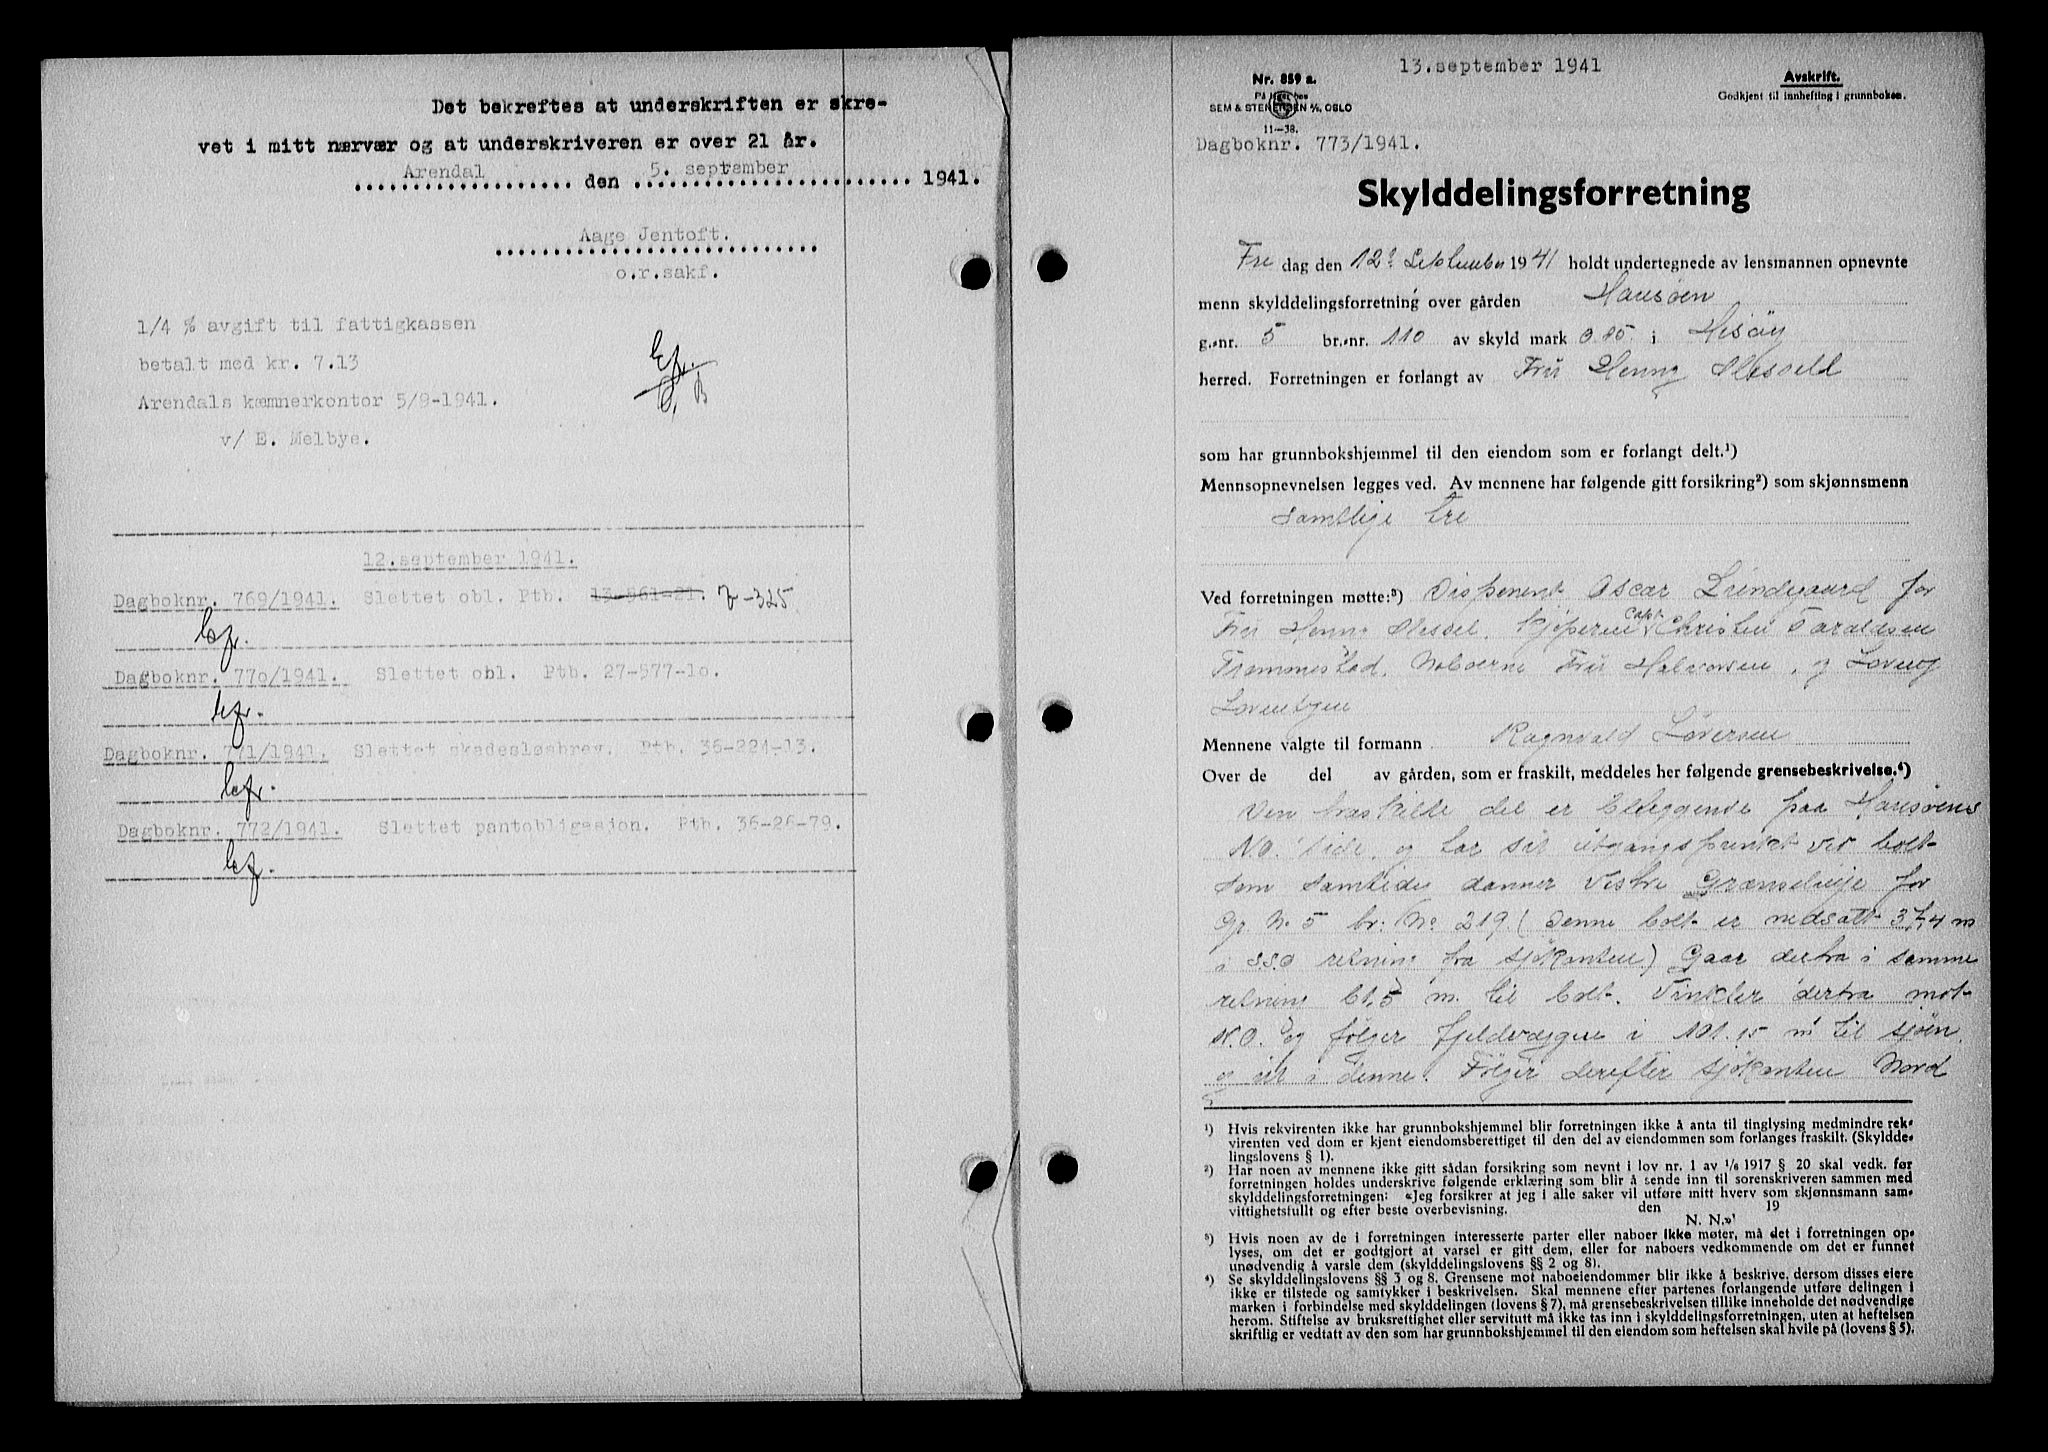 Det bekreftes at underskriften er skre-
vet i mitt nærvær og at underskriveren er over 21 år.
Arendal den 5. september 1941.
Aage Jentoft.
o.r.sakf.
1/4 % avgift til fattigkassen
betalt med kr. 7.13
Arendals kæmnerkontor 5/9-1941.
v/ E. Melbye.
12.september 1941.
Dagboknr. 769/1941. Slettet obl. Ptb. 13-561-21. 7-325
Dagboknr. 770/1941. Slettet obl. Ptb. 27-577-10.
Dagboknr. 771/1941. Slettet skadesløsbrev. Ptb. 36-224-13.
Dagboknr. 772/1941. Slettet pantobligasjon. Ptb. 36-26-79.
13.september 1941
Nr. 859 a.
På lager hos
SEM & STENERSEN A/S, OSLO
11-38.
Avskrift.
Godkjent til innhefting i grunnboken.
Dagboknr. 773/1941.
Skylddelingsforretning
Fre dag den 12. September 1941 holdt undertegnede av lensmannen opnevnte
menn skylddelingsforretning over gården Hausøen
g.nr. 5 br.nr. 110 av skyld mark i Hisøy
herred. Forretningen er forlangt av Fru Henny
som har grunnbokshjemmel til den eiendom som er forlangt delt.¹)
Mennsopnevnelsen legges ved. Av mennene har følgende gitt forsikring²) som skjønnsmenn
samtlige tre
Ved forretningen møtte:³) Disponent Oscar Lindegaard for
Fru Henny Kjøperen Capt. Christen Taraldsen
Trommestad. Naboerne Fru Halvorsen, og
Lorentzen
Mennene valgte til formann Ragnvald
Over de del av gården, som er fraskilt, meddeles her følgende grensebeskrivelse.⁴)
Den fraskilte del er beliggende paa Hausøens
N.O. side, og har sit utgangspunkt ved bolt
som samtidig danner vestre Grænselinje for
Gr. N. 5 br. No. 219. (Denne bolt er nedsatt 37,4 m
i S.S.O retning fra sjøkanten) Gaar derfra i samme
retning 61,5 m. til bolt. Vinkler derfra mot
N.O. og følger fjeldvæggen i 101.15 m til sjøen
og ut i denne. Følger derefter sjøkanten Nord
¹) Hvis rekvirenten ikke har grunnbokshjemmel blir forretningen ikke å anta til tinglysing medmindre rek-
virenten ved dom er kjent eiendomsberettiget til den del av eiendommen som forlanges fraskilt. (Skyldde-
lingslovens § 1).
²) Har noen av mennene ikke gitt sådan forsikring som nevnt i lov nr. 1 av 1/6 1917 § 20 skal vedk. før
forretningen holdes underskrive følgende erklæring som blir å sende inn til sorenskriveren sammen med
skylddelingsforretningen: «Jeg forsikrer at jeg i alle saker vil utføre mitt hverv som skjønnsmann sam-
vittighetsfullt og efter beste overbevisning. den 19
N. N.»
³) Hvis noen av de i forretningen interesserte parter eller naboer ikke møter, må det i forretningen op-
lyses, om det er godtgjort at varsel er gitt dem, eller for naboers vedkommende om det er funnet
unødvendig å varsle dem (skylddelingslovens §§ 2 og 8).
⁴) Se skylddelingslovens §§ 3 og 8. Grensene mot naboeiendommer blir ikke å beskrive, dersom disses eiere
ikke er tilstede og samtykker i beskrivelsen. Skal mennene efter partenes forlangende utføre delingen i
marken i forbindelse med skylddelingen (lovens § 7), må grensebeskrivelsen tillike inneholde det nødvendige
herom. Stiftelse av bruksrettighet eller servitutt må ikke tas inn i skylddelingsforretningen, uten at heftelsen
skriftlig er vedtatt av den som har grunnbokshjemmel til den eiendom som heftelsen skal hvile på (lovens § 5).